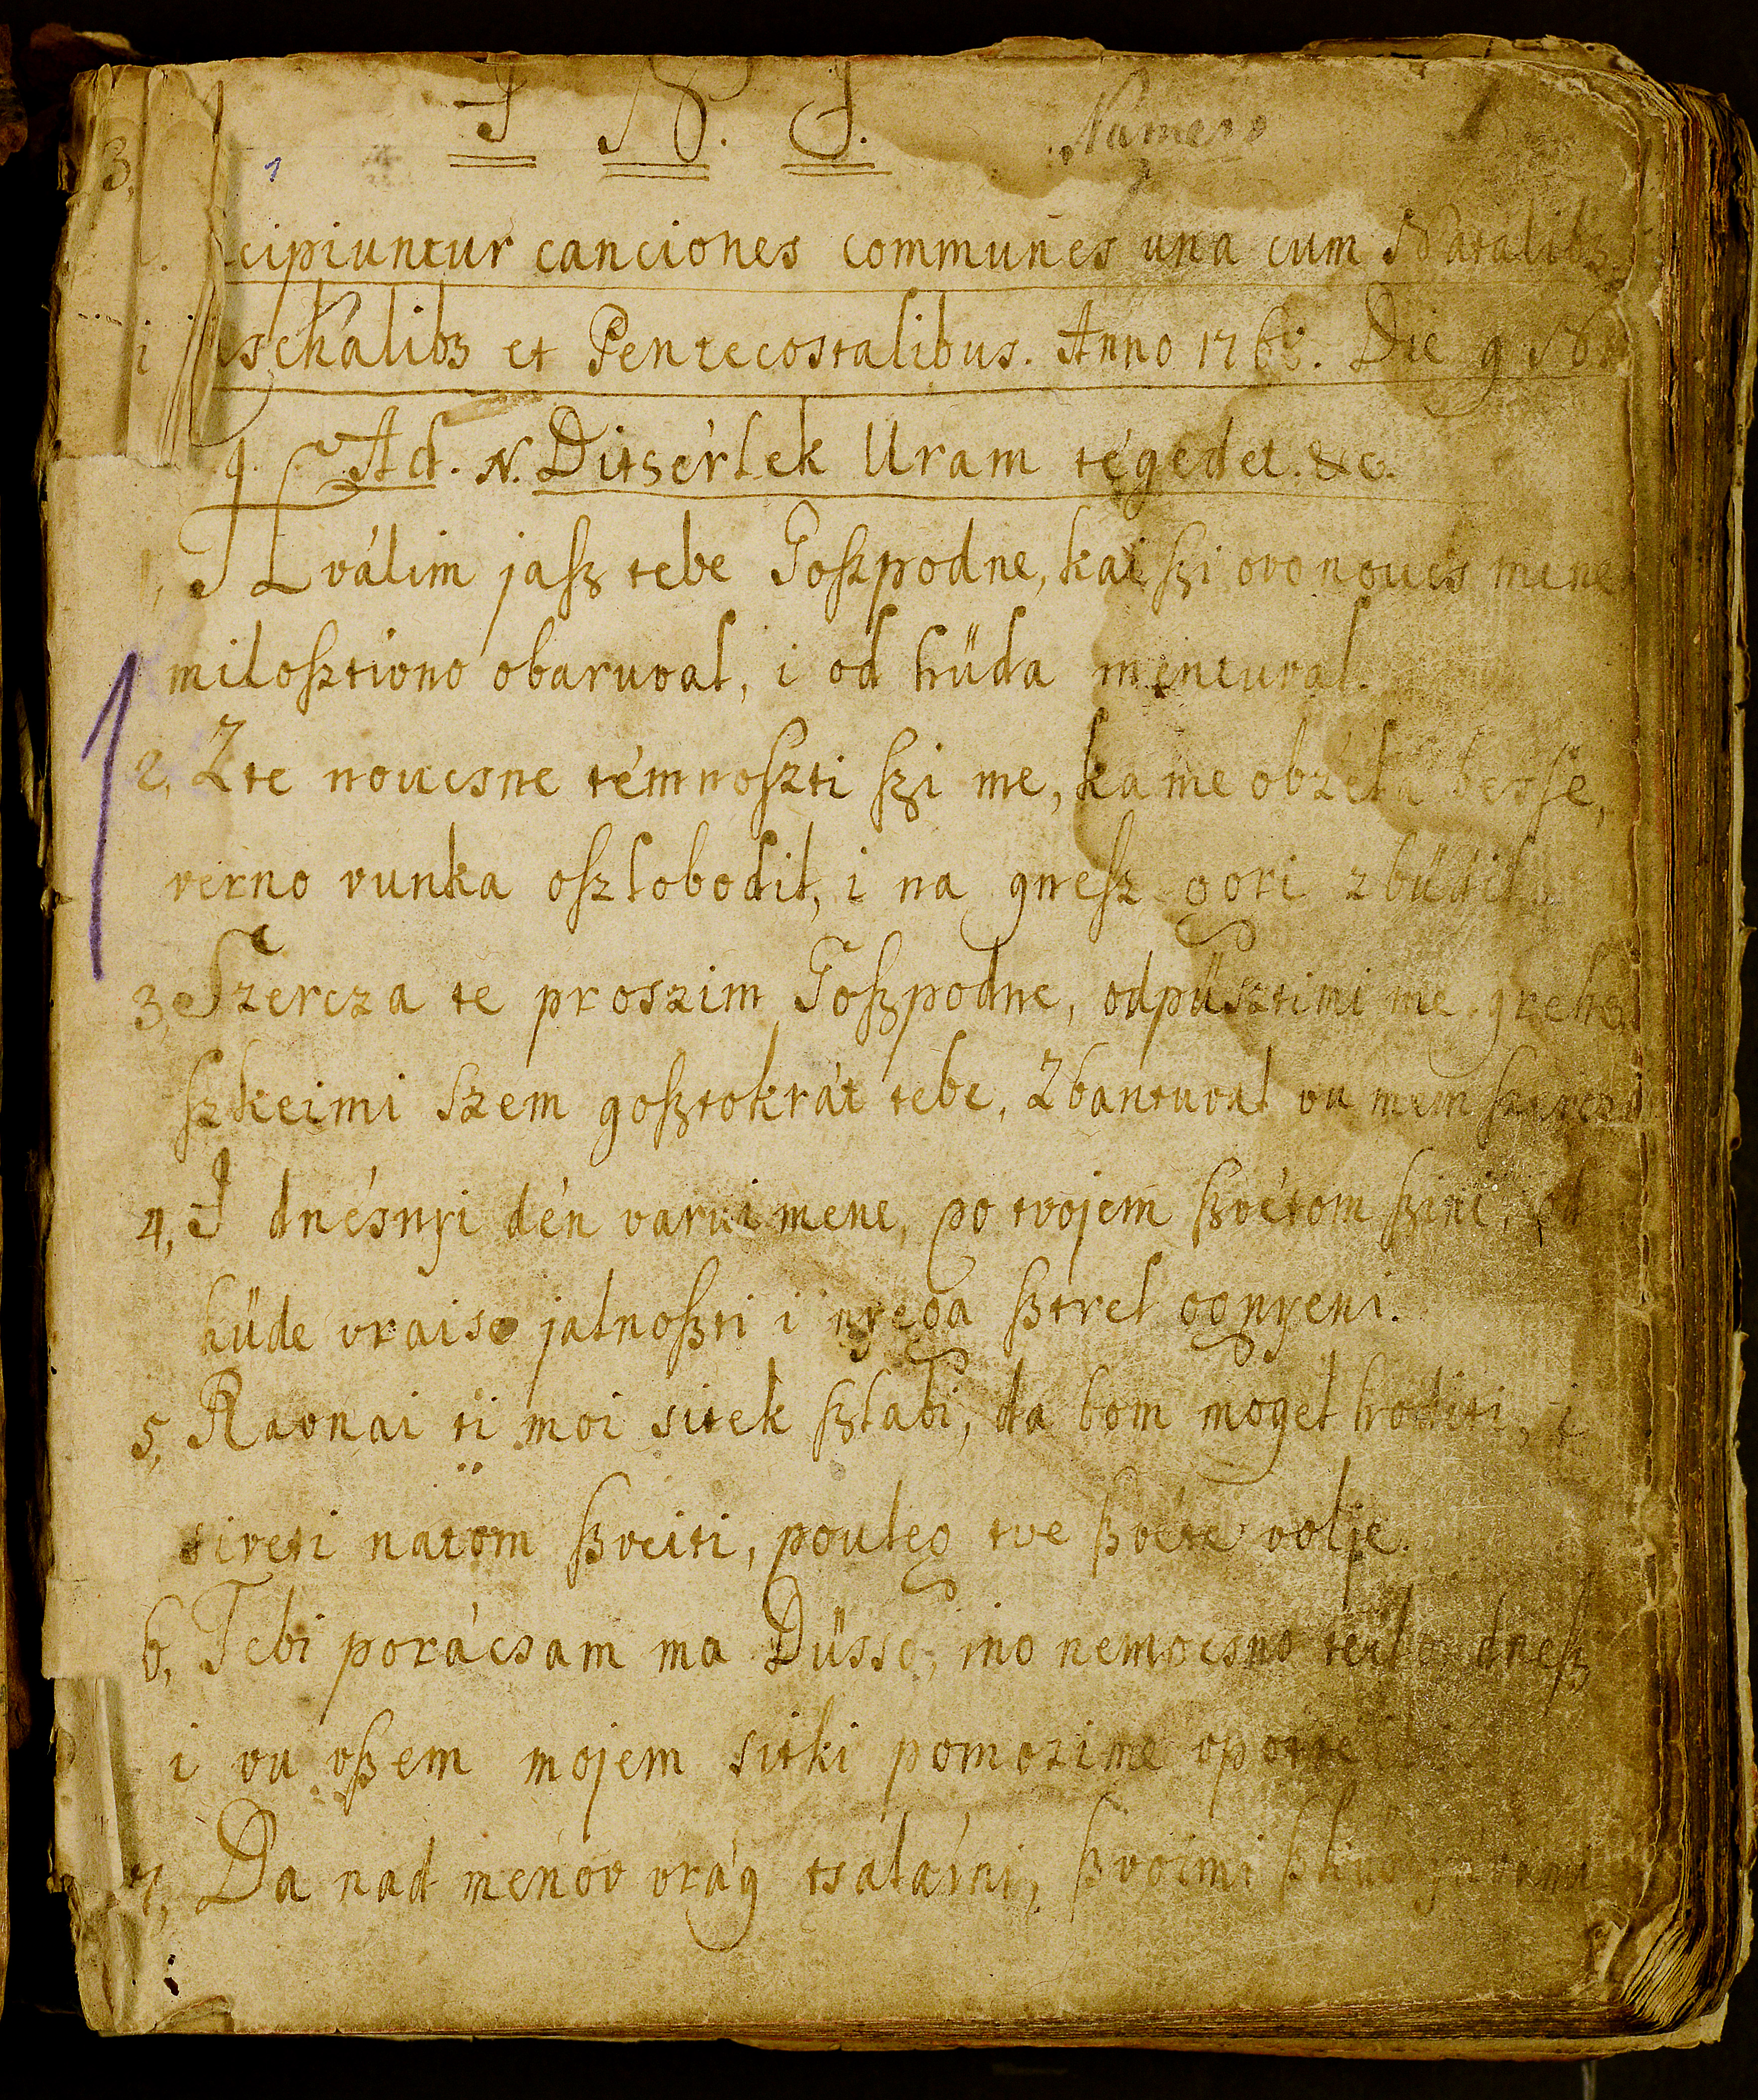 J N. J.
Numero
1
cipiuntur canciones communes una cum Natalibꝫ
schalibꝫ et Pentecostalibus. Anno 176 Die 9
Ad. N. Ditsérlek Uram tégedet. &c.
Hválim jaſz tebe Goſzpodne, kai ſzi ovo noucs mene
miloſztivno obaruval, i od hüda mentuval.
2, Z te noucsne témnoſzti ſzi me, ka me obzéla besſe,
verno vunka oſzlobodil, i na gneſz gori zbüdil
3, Szercza te proszim Goſzpodne, odpüsztimi me grehe
ſzkeimi szem goſztokrát tebe, Zbantuval vu mem
4, I dnésnyi dén varui mene, po tvojem ſzvétom ſzini, od
hüde vraise jalnoſzti i nyega ſztrel ognyeni.
5, Ravnai ti moi sitek ſzlabi, da bom mogel hoditi, i
siveti natom ſzveiti, pouleg tve ſzvéte volje.
6, Tebi porácsam ma Düsso, ino nemocsno teilo dneſz
i vu vſzem mojem sitki pomozi me
7, Da nad menov vrág tsalárni, ſzvoimi
1